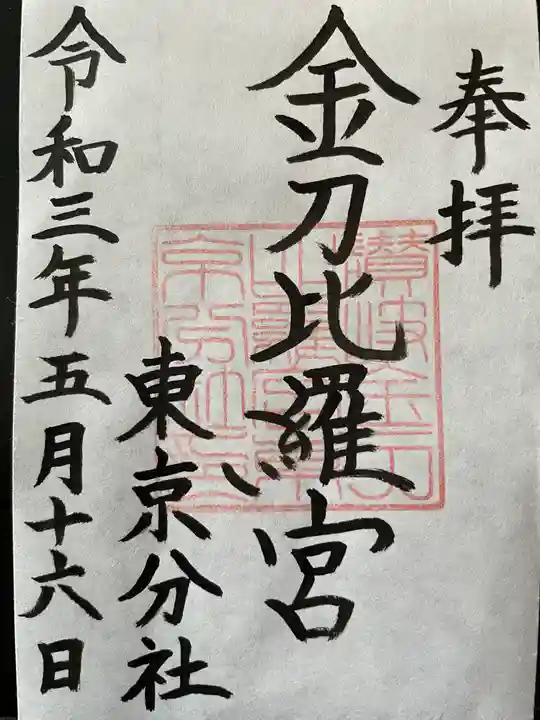 奉拝
金刀比羅宮
東京分社
令和三年五月十六日